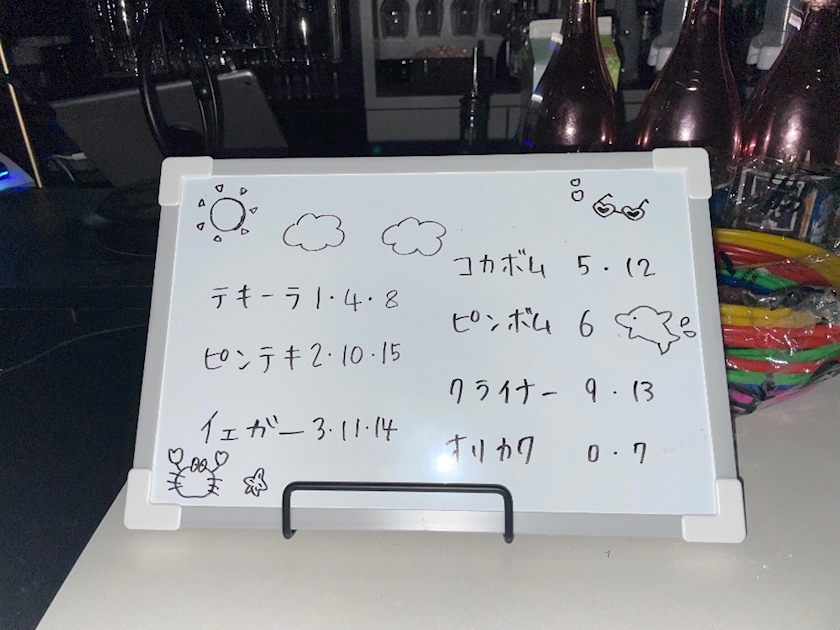 テキーラ 1・4・8
ピンテキ 2・10・15
イェガー 3・11・14
コカボム 5・12
ピンボム 6
クライナー 9・13
オリカク 0・7